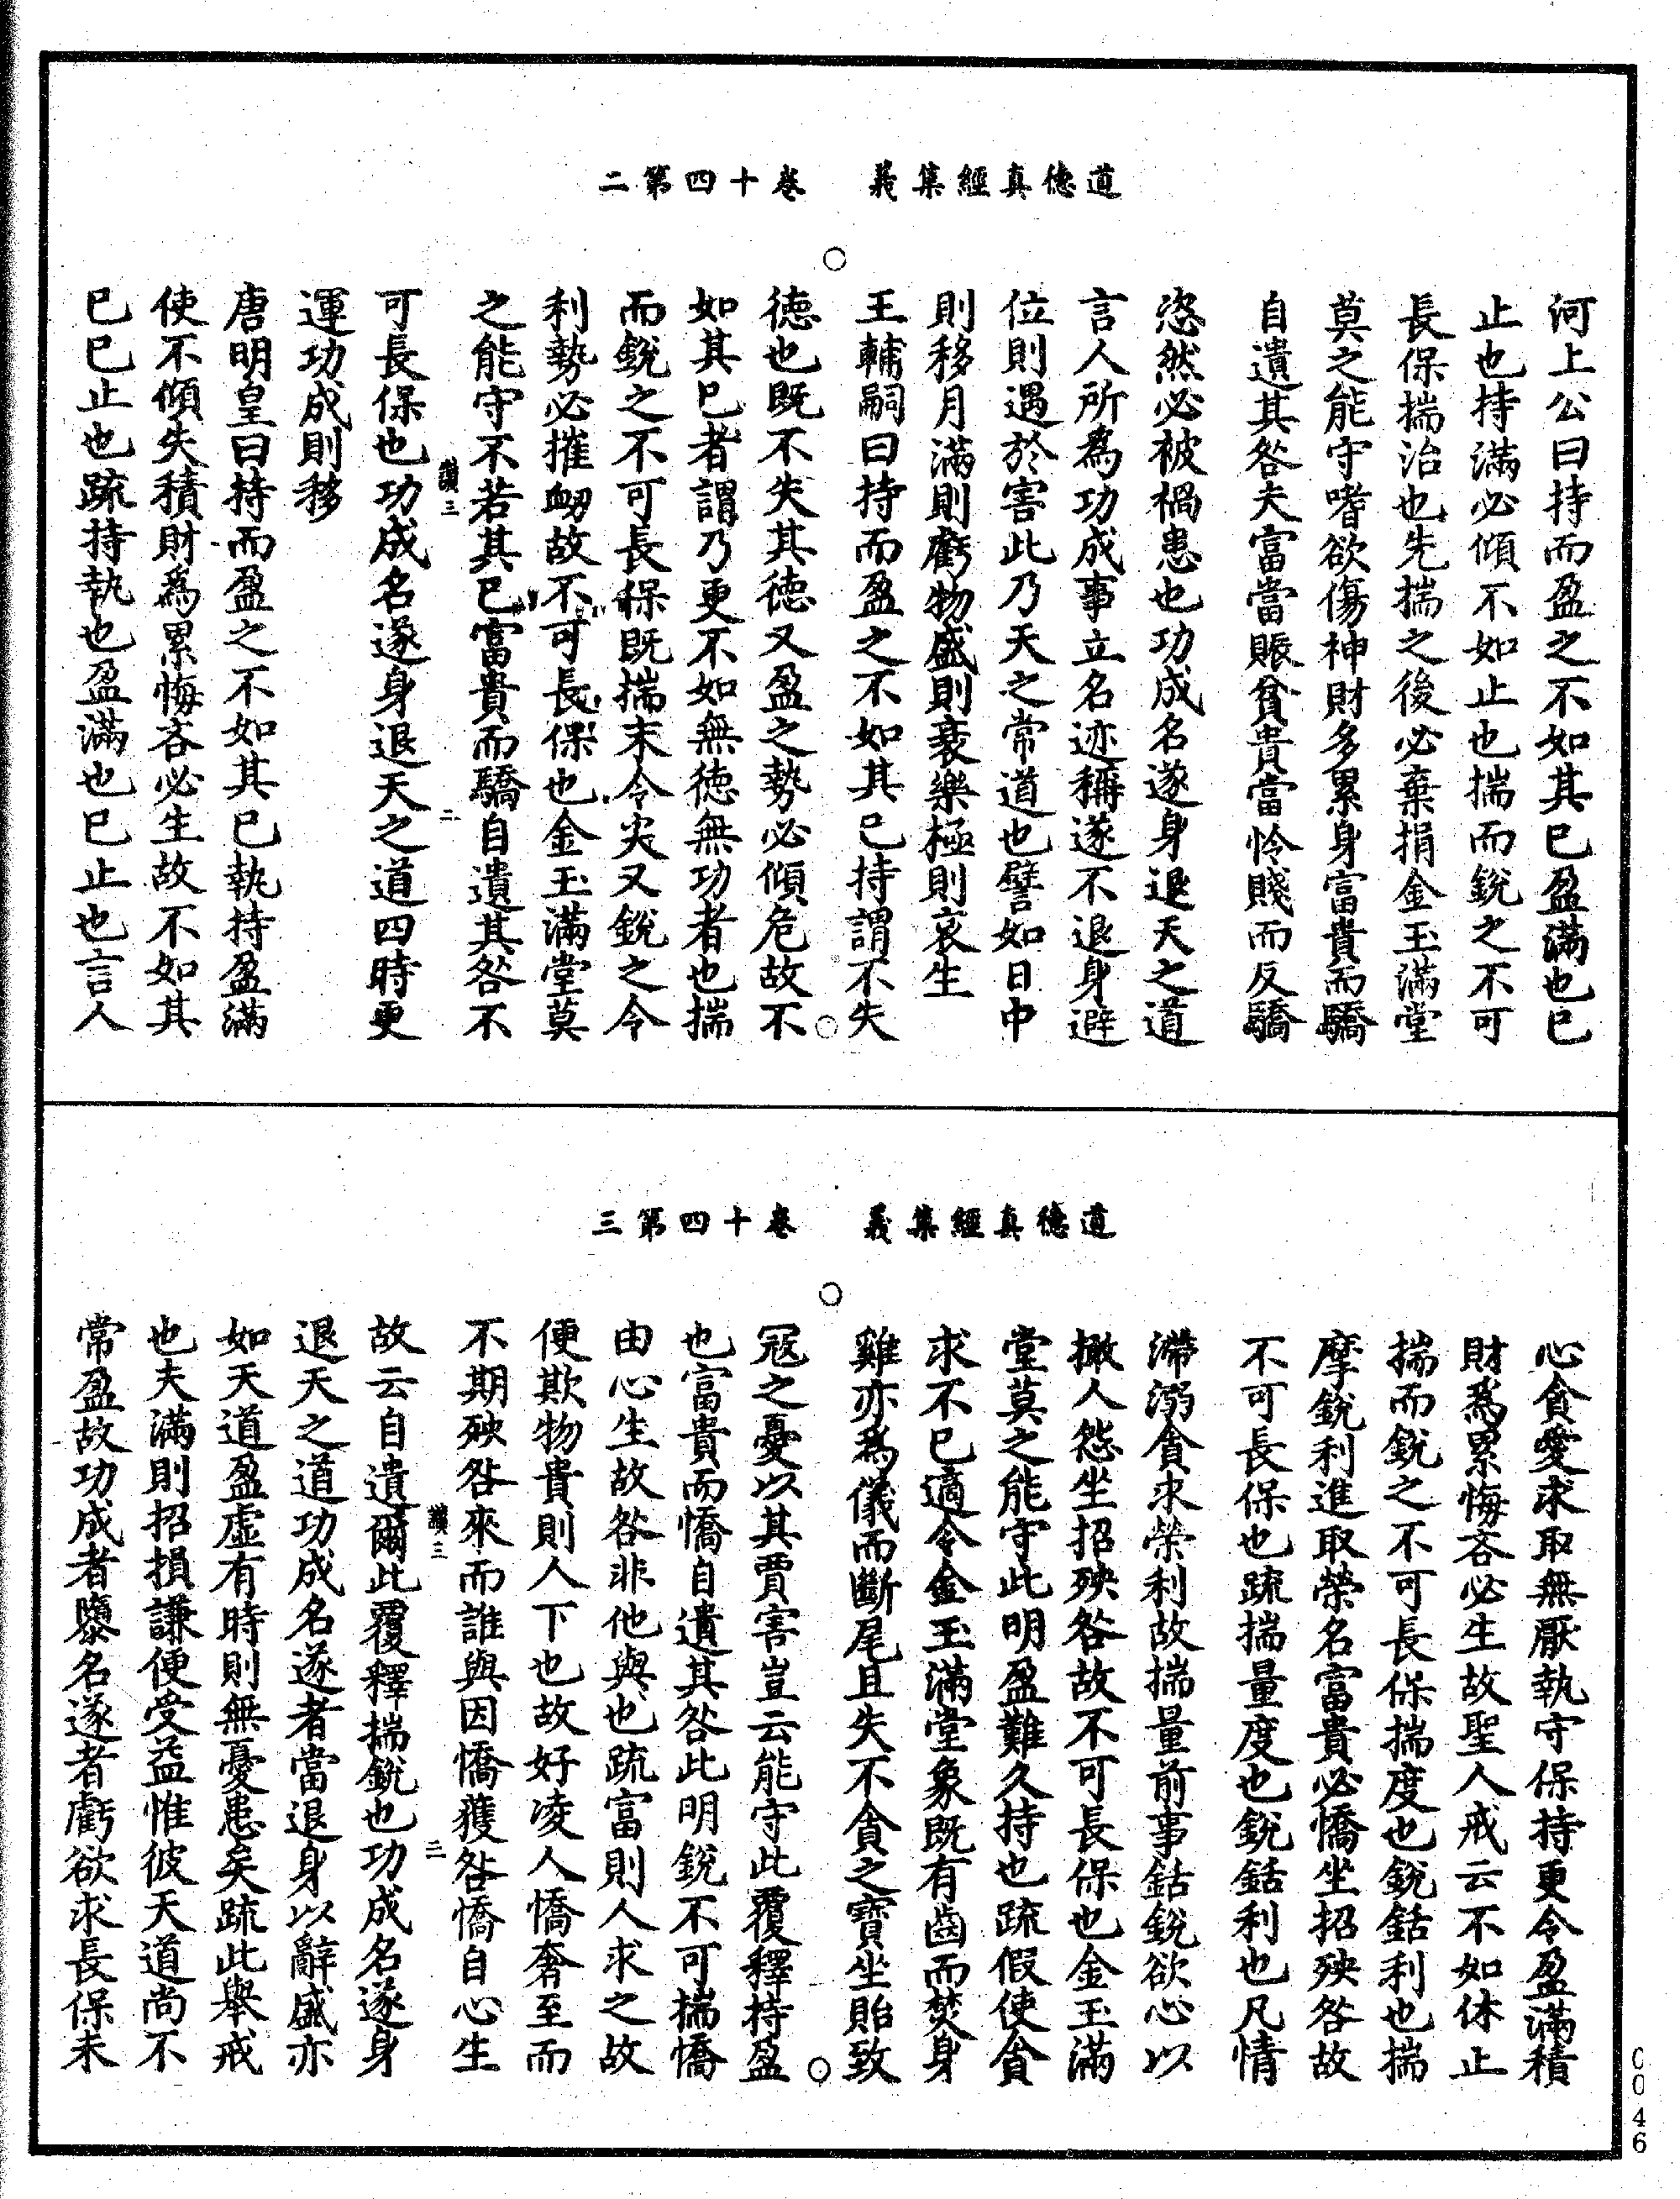 道德真經集義　卷十四第二
河上公曰持而盈之不如其已盈滿也已
止也持滿必傾不如止也揣而銳之不可
長保揣治也先揣之後必棄捐金玉滿堂
莫之能守嗜欲傷神財多累身富貴而驕
自遺其咎夫富當賑貧貴當怜賤而反驕
恣然必被禍患也功成名遂身退天之道
言人所為功成事立名迹稱遂不退身避
位則遇於害此乃天之常道也譬如日中
則移月滿則虧物盛則衰樂極則哀生
王輔嗣曰持而盈之不如其已持謂不失
德也既不失其德又盈之勢必傾危故不
如其已者謂乃更不如無德無功者也揣
而銳之不可長保既揣末令尖又銳之令
利勢必摧衂故不可長保也金玉滿堂莫
之能守不若其已富貴而驕自遺其咎不
讚三　二
可長保也功成名遂身退天之道四時更
運功成則移
唐明皇曰持而盈之不如其已執持盈滿
使不傾失積財為累悔吝必生故不如其
已已止也疏持執也盈滿也已止也言人
道德真經集義　卷十四第三
心貪愛求取無厭執守保持更令盈滿積
財為累悔吝必生故聖人戒云不如休止
揣而銳之不可長保揣度也銳銛利也揣
摩銳利進取榮名富貴必憍坐招殃咎故
不可長保也疏揣量度也銳銛利也凡情
滯溺貪求榮利故揣量前事銛銳欲心以
撖人怨坐招殃咎故不可長保也金玉滿
堂莫之能守此明盈難久持也疏假使貪
求不已適令金玉滿堂象既有齒而焚身
雞亦為儀而斷尾且失不貪之寶坐貽致
寇之憂以其賈害豈云能守此覆釋持盈
也富貴而憍自遺其咎此明銳不可揣憍
由心生故咎非他與也疏富則人求之故
便欺物貴則人下也故好凌人憍奢至而
不期殃咎來而誰與因憍獲咎憍自心生
讚三　二
故云自遺爾此覆釋揣銳也功成名遂身
退天之道功成名遂者當退身以辭盛亦
如天道盈虛有時則無憂患矣疏此舉戒
也夫滿則招損謙便受益惟彼天道尚不
常盈故功成者隳名遂者虧欲求長保未
0046